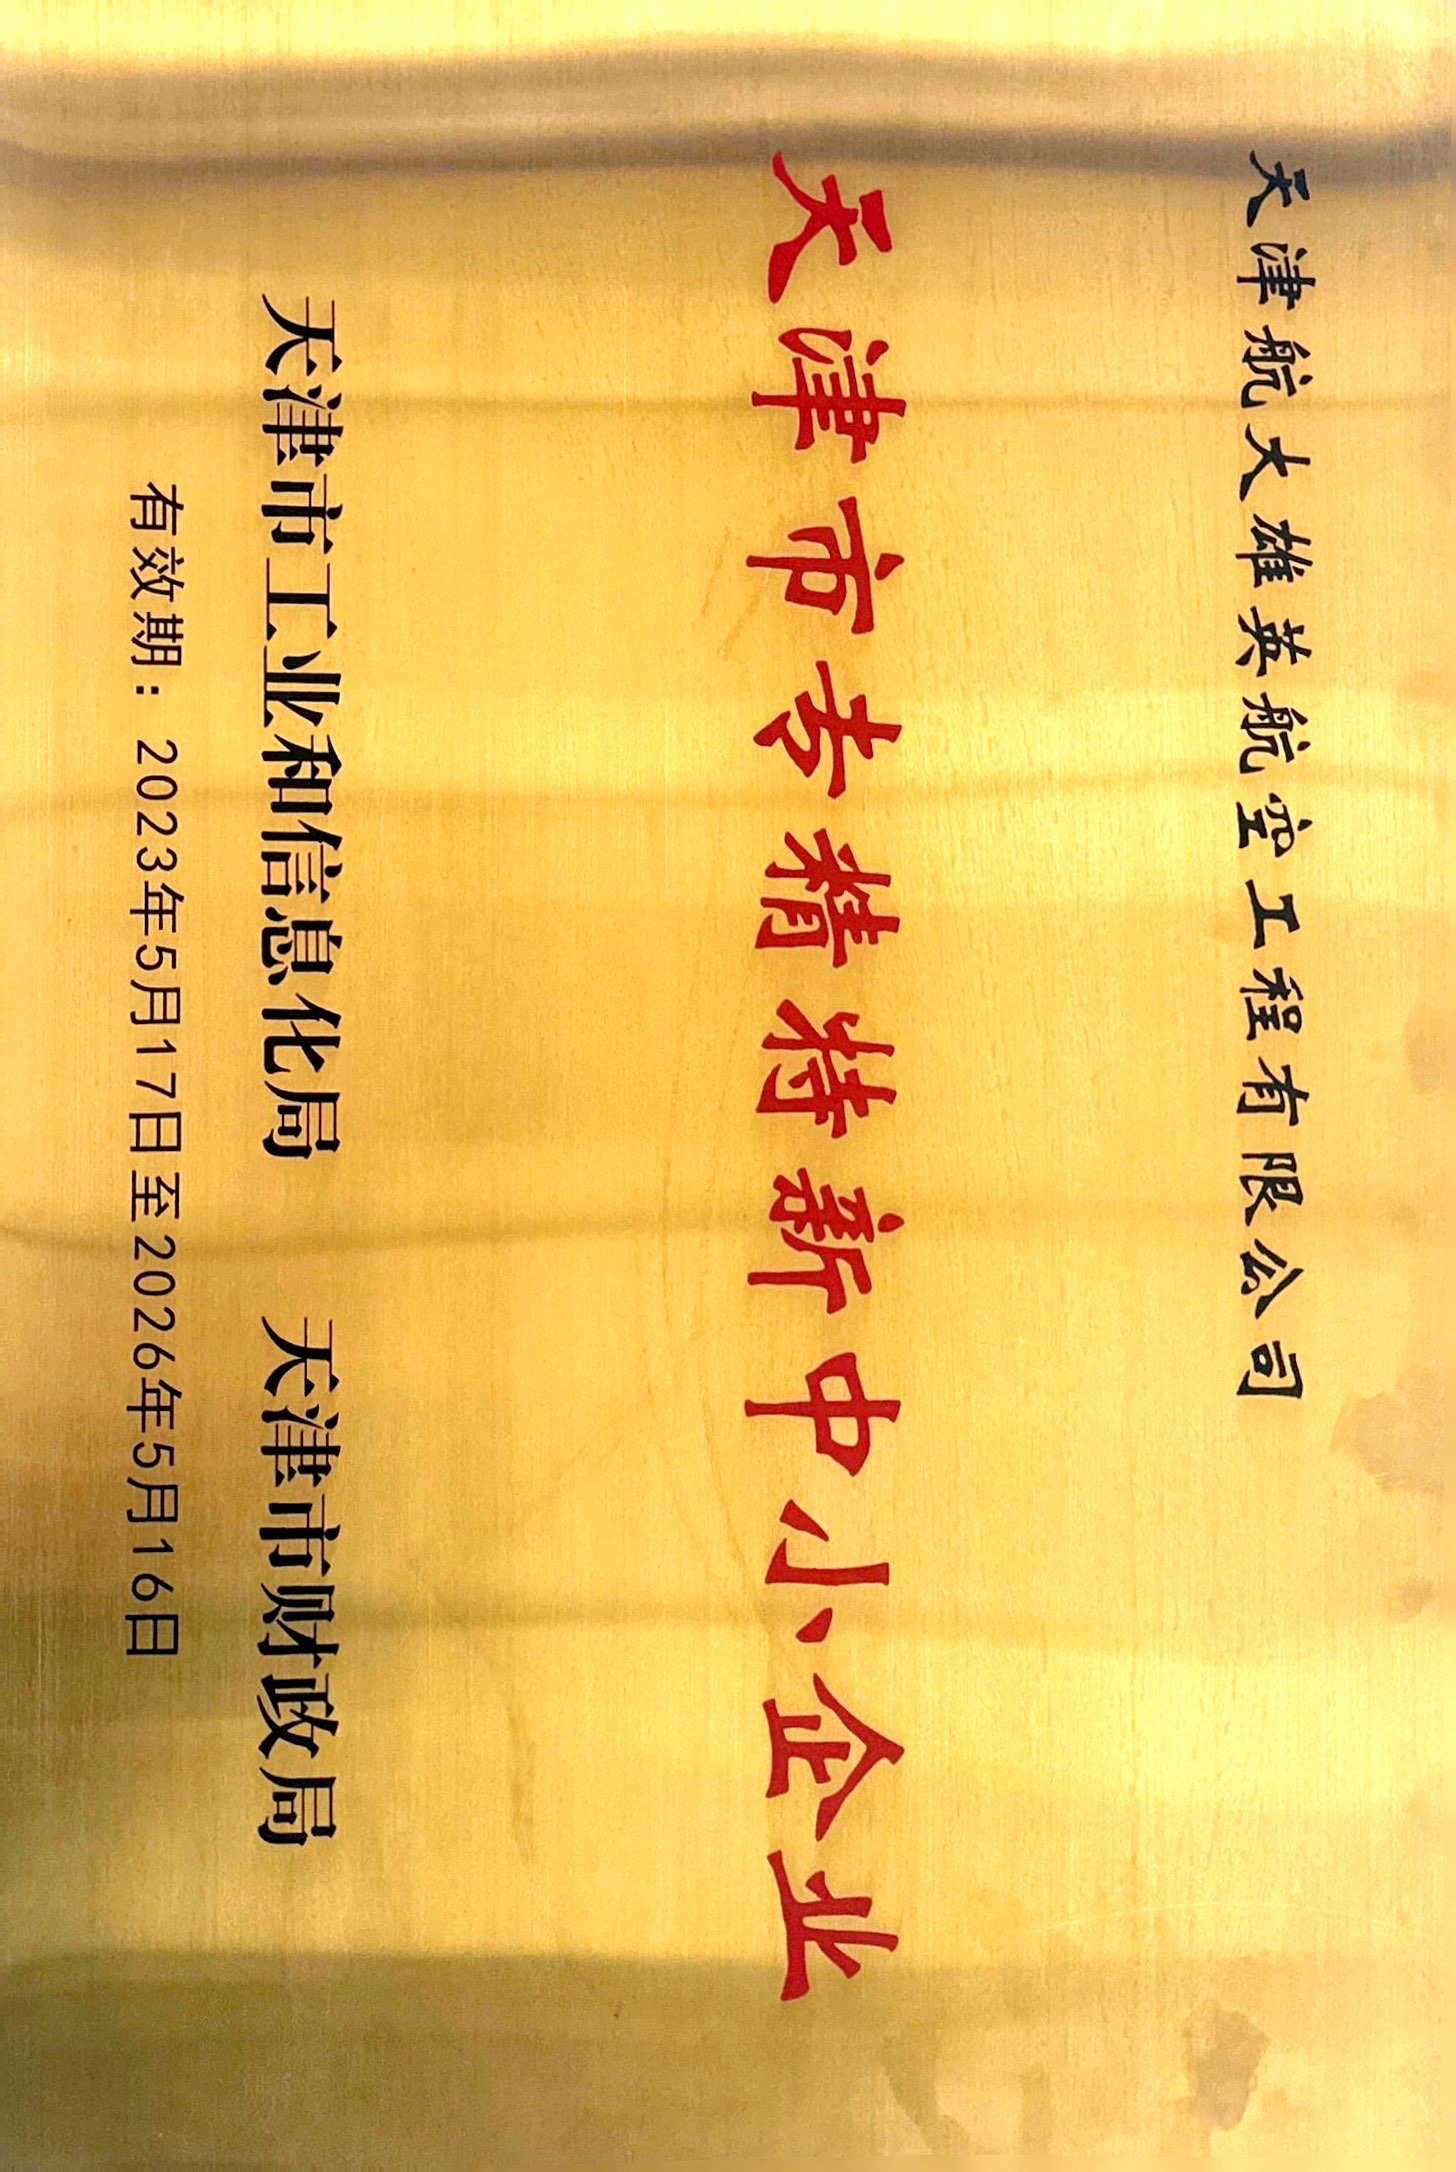 天津航大雄英航空工程有限公司
天津市专精特新中小企业
天津市工业和信息化局 天津市财政局
有效期：2023年5月17日至2026年5月16日